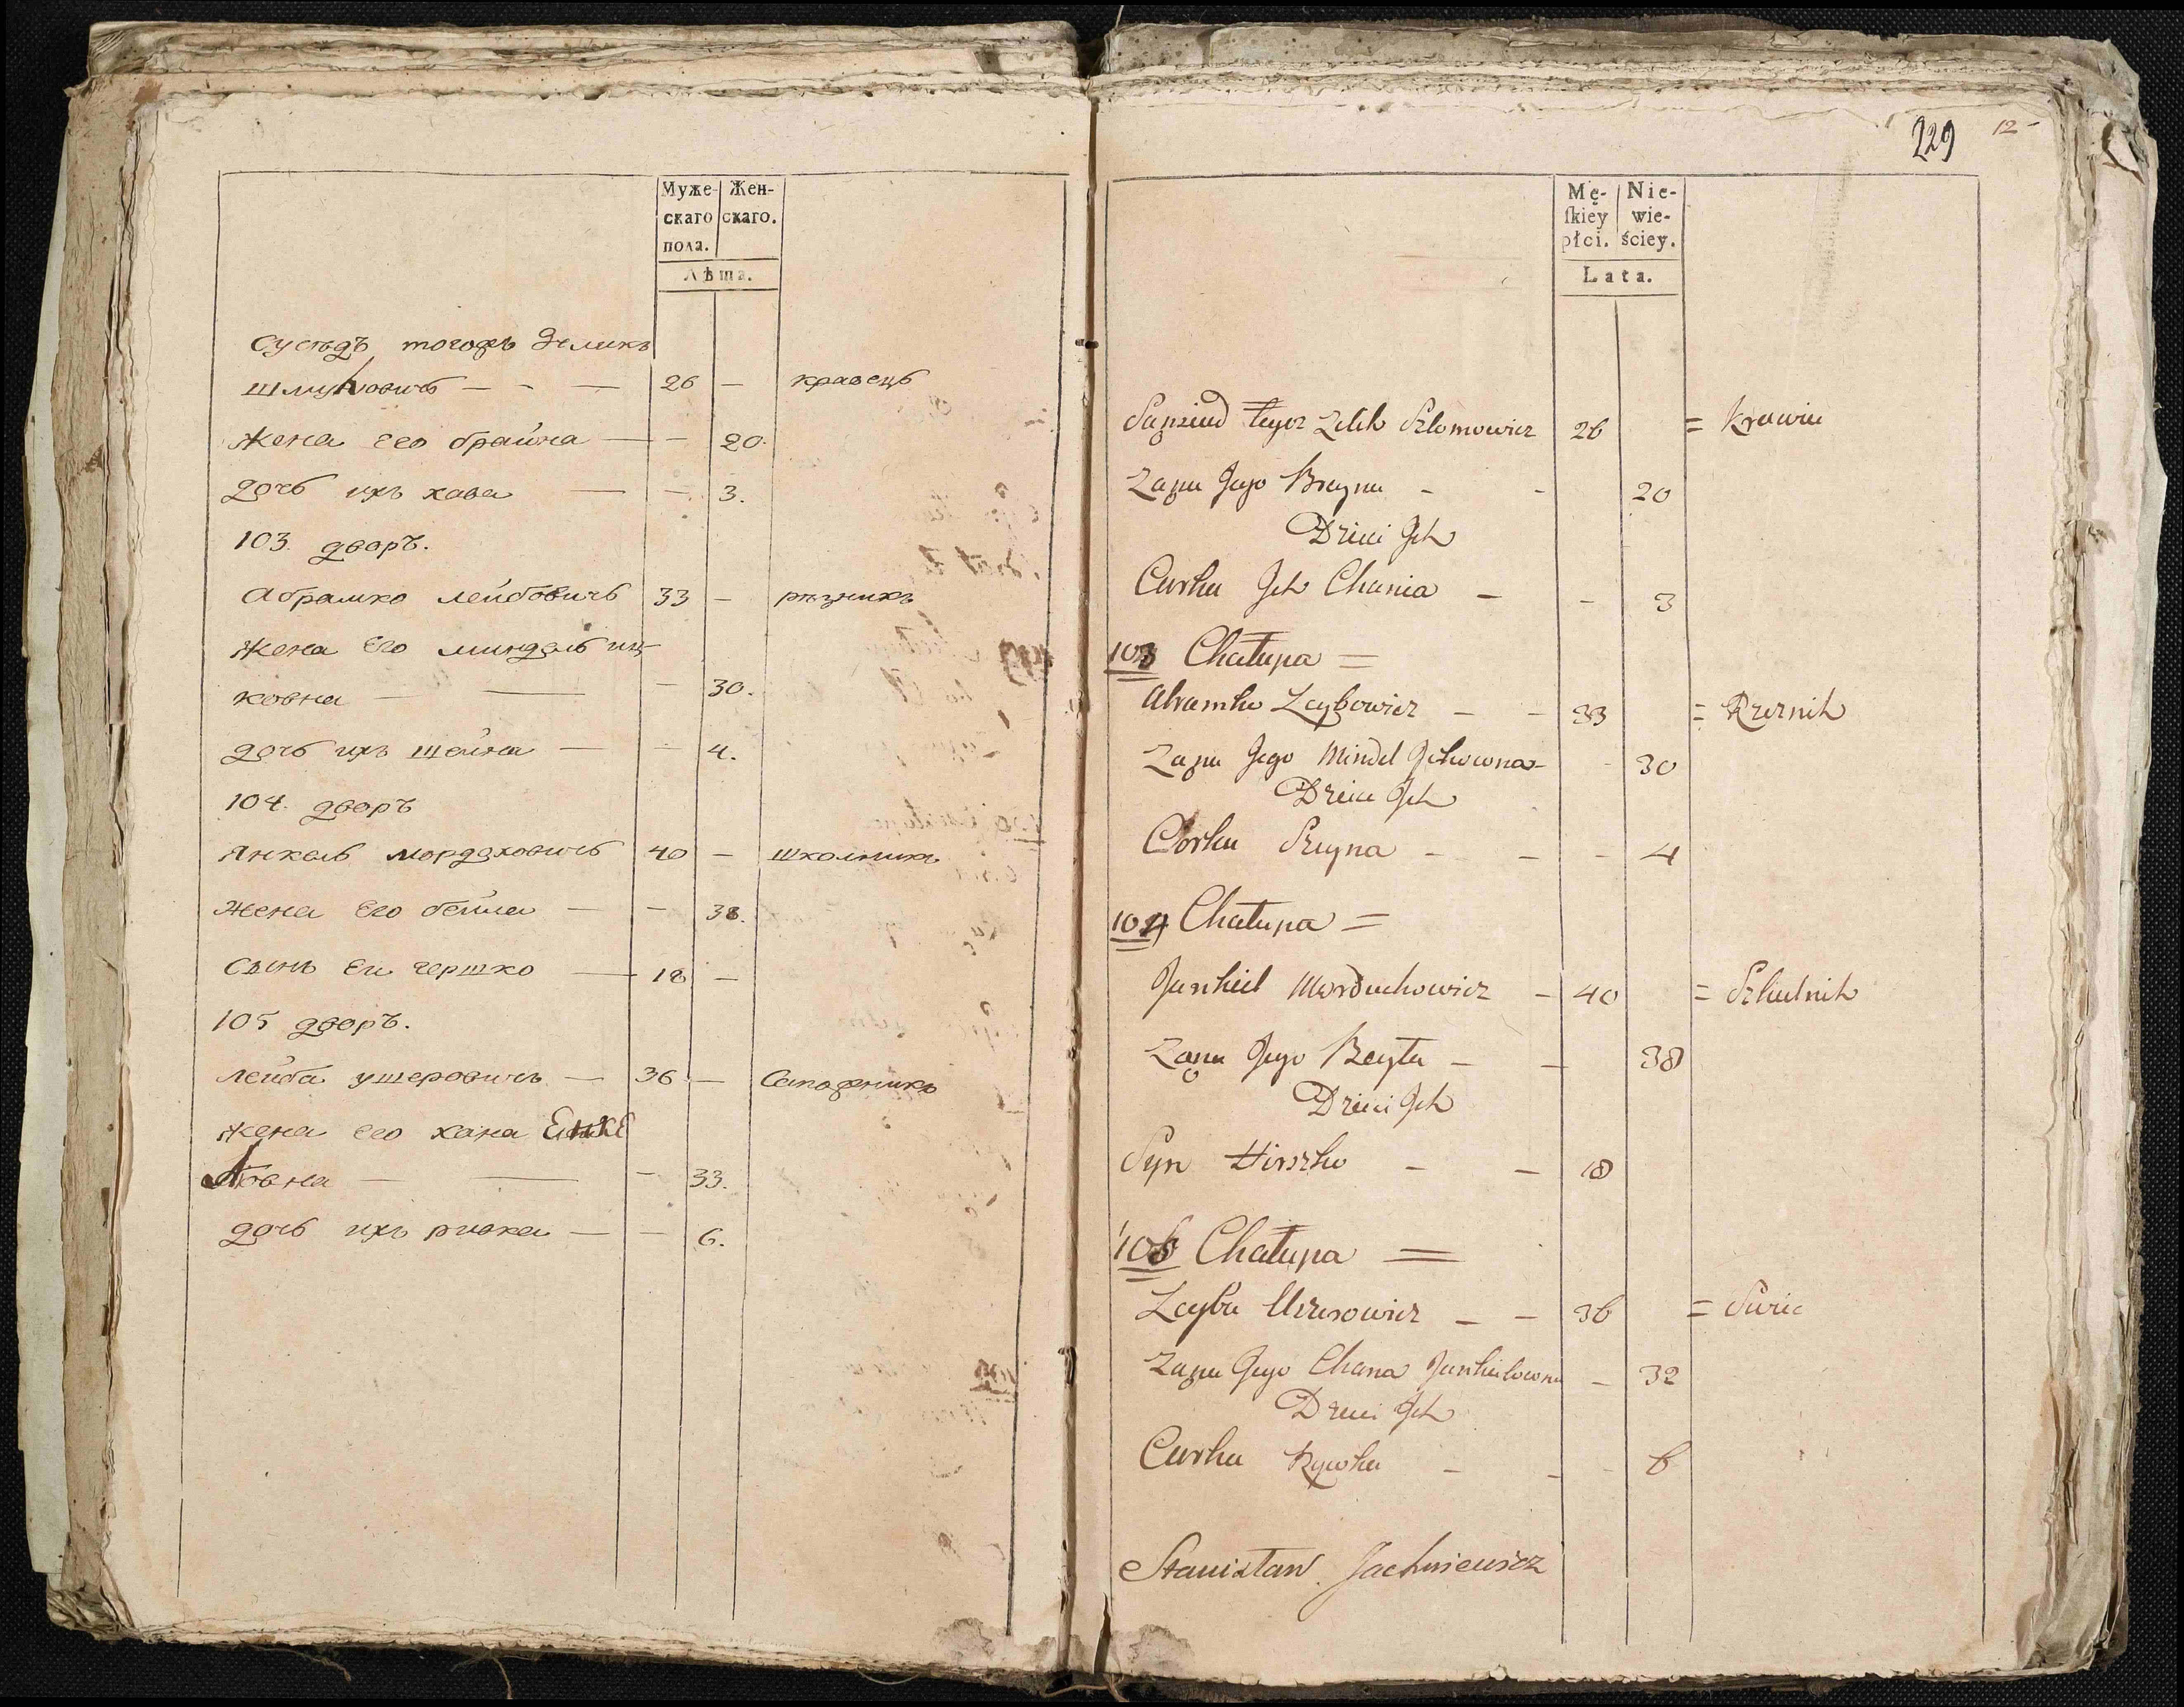 Муже-
скаго
пола.
Жен-
скаго.
Лѣта.
Сусѣдъ тогожъ Зеликъ
Шмуловичъ — - — 26 — кравецъ
Жена его брайна — — 20.
дочь ихъ хава — — 3.
103. дворъ.
Абрамко лейбовичъ 33 — рѣзникъ
Жена Его миндель иц-
ковна — — — 30.
дочь ихъ шейна — — 4.
104. дворъ
Янкель мордаховичъ 40 — школникъ
Жена Его бейла — — 38.
Сынъ Еи гершко — 18 —
105 дворъ.
Лейба ушеровичъ — 36 — Сапожникъ
Жена Его хана Енке
лѣовна — — — 33.
дочь ихъ ривка — — 6.
229 12-
Mę-
ſkiey
płci.
Nie-
wie-
ściey.
Lata.
Sąsiad tegoż Zelik Szlomowicz 26 = Krawiec
Zaąna Jego Brayna - - 20
Dzieci Ich
Curka Ich Chania - - 3
103 Chałupa =
Abramko Leybowicz - - 33 = Rzeznik
Zana Jego Mindel Ickowna - - 30
Dzieci Ich
Corka Szeyna - - - 4
104 Chałupa =
Jankiel Morduchowicz - 40 = Szkulnik
Zona Jego Beyła - - 38
Dzieci Ich
Syn Hirszko - - 18
105 Chałupa =
Leyba Uszerowicz - - 36 = Swiec
Zana Jego Chana Jankielowna - 32
Dzieci Ich
Curka Rywka - - - 6
Stanisław Jachniewicz